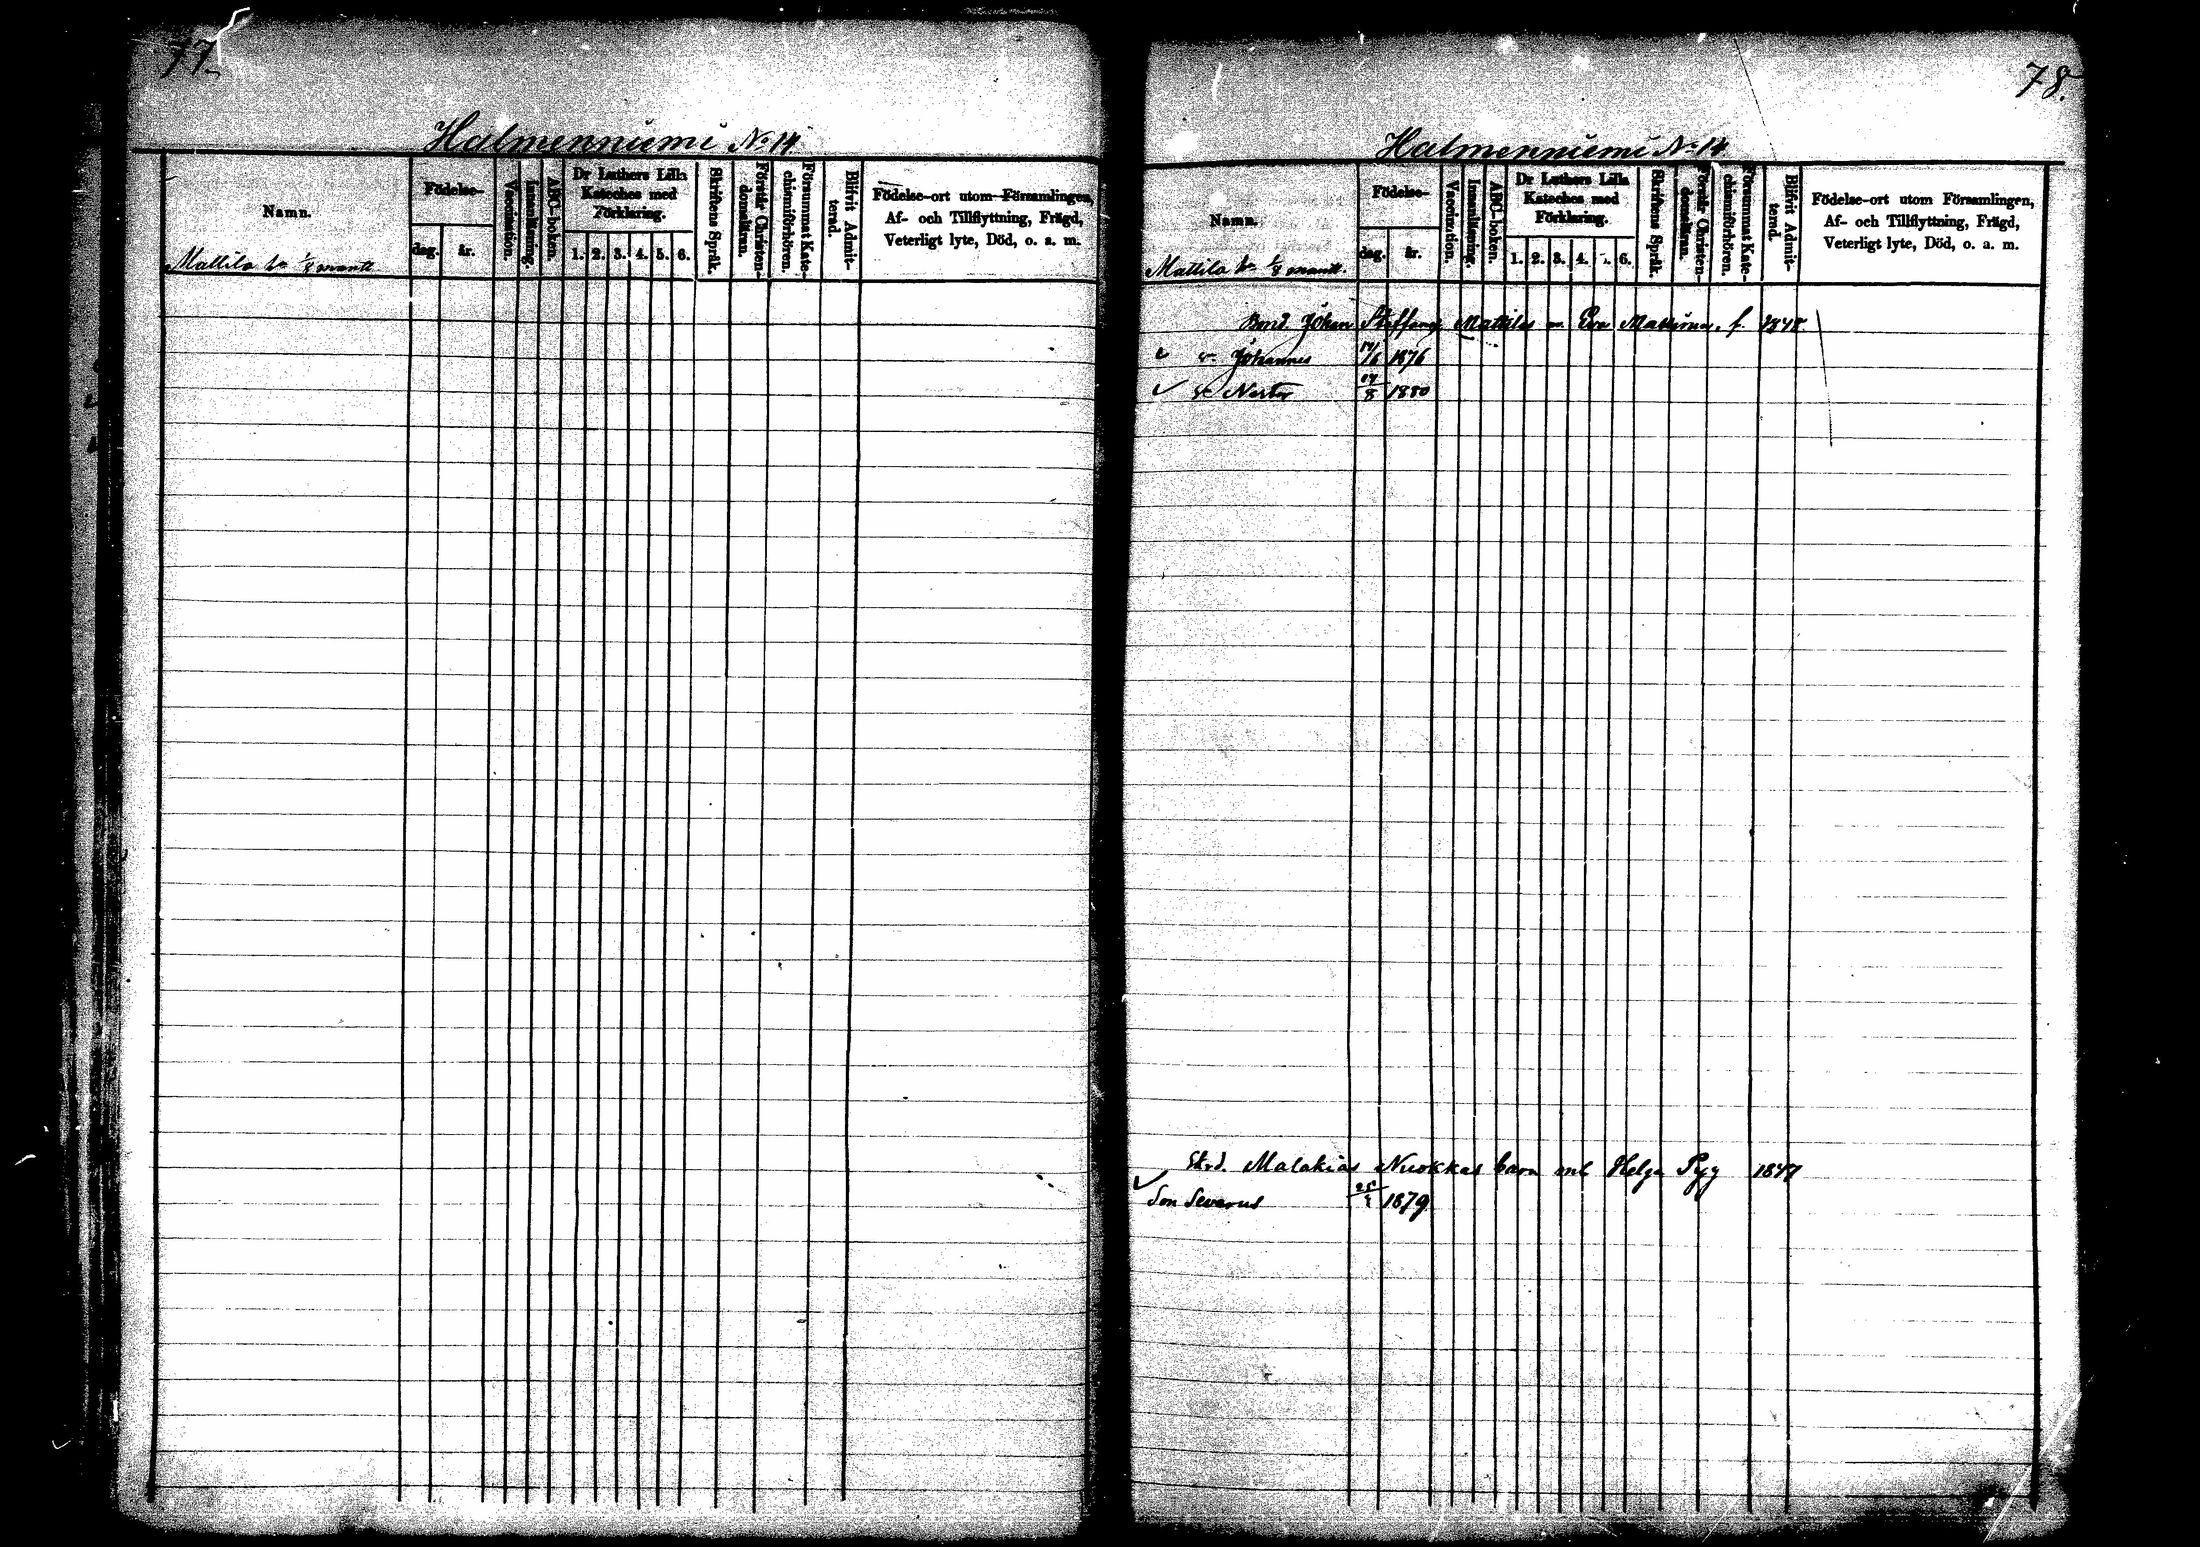 77
Halmenniemi No 14
Namn.
Födelse-
dag.
år.
Vaccination.
Innanläsning.
ABC-boken.
Dr Luthers Lilla
Kateches med
Förklaring.
1. 2. 3. 4. 5. 6.
Skriftens Språk.
Förstår Christen-
domsläran.
Försummat Kate-
chismiförhören.
Blifvit Admit-
terad.
Födelse-ort utom Församlingen,
Af- och Tillflyttning, Frägd,
Veterligt lyte, Död, o. a. m.
Mattila 1/8 mantl
78.
Halmenniemi No 14.
Namn.
Födelse-
dag.
år.
Vaccination.
Innanläsning.
ABC-boken.
Dr Luthers Lilla
Kateches med
Förklaring.
1. 2. 3. 4. 6.
Skriftens Språk.
Förstår Christen-
domsläran.
Försummat Kate-
chismiförhören.
Blifvit Admit-
terad.
Födelse-ort utom Församlingen,
Af- och Tillflyttning, Frägd,
Veterligt lyte, Död, o. a. m.
Mattila 1/8 mantl.
Bond. Johan Staffans Mattilas m. Eva f. 1848
Johannes 1876
Nestor 1880
Malakias Nuokkas barn m. Helga Pyy 1847
Son Severus 1879